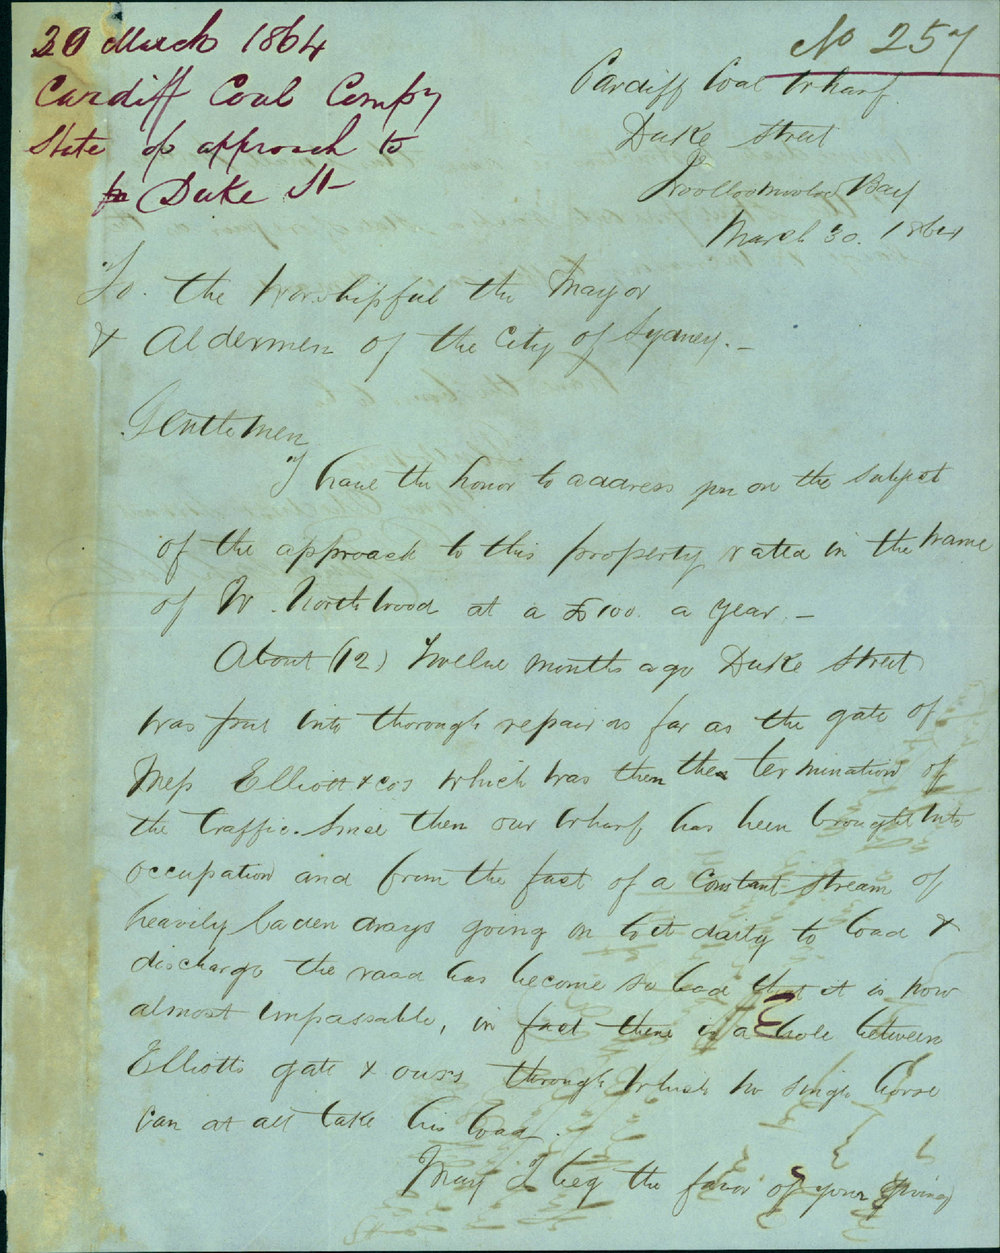 No 257
30 March 1864
Cardiff Coal Compy
State of approach to
Duke St
Cardiff Coal Wharf
Duke Street
Woolloomooloo Bay
March 30. 1864
To. the Worshipful the Mayor
& Aldermen of the City of Sydney. —
Gentlemen
I have the honor to address you on the subject
of the approach to this property rated in the name
of W. Northwood at a £100. a year. —
About (12) Twelve months ago Duke Street
was put into thorough repair as far as the gate of
Mess Elliott & Cos which was then the termination of
the traffic. Since then our wharf has been brought into
occupation and from the fact of a constant stream of
heavily laden drays going on to it daily to load &
discharge the road has become so bad that it is now
almost impassable, in fact there is a hole between
Elliotts gate & ours through which no single horse
can at all take his load.
May I beg the favor of your giving